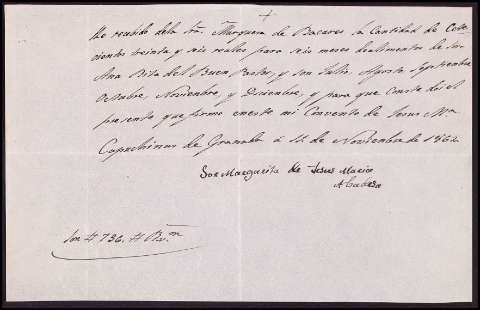 +
He recibido dela Sra. Marquesa de Bacares la Cantidad de Sete
cientos treinta y seis reales para seis meses dealimentos de Sor
Ana Rita del Buen Pastor, y son Julio, Agosto Septiembre
Octubre, Noviembre, y Diciembre, y para que conste doi el
presente que firmo eneste mi Convento de Jesus Ma
Capuchinas de Granada á 12 de Noviembre de 1862
Sor Margarita de Jesus Maria
Abadesa
Son # 736 # Rs. vn